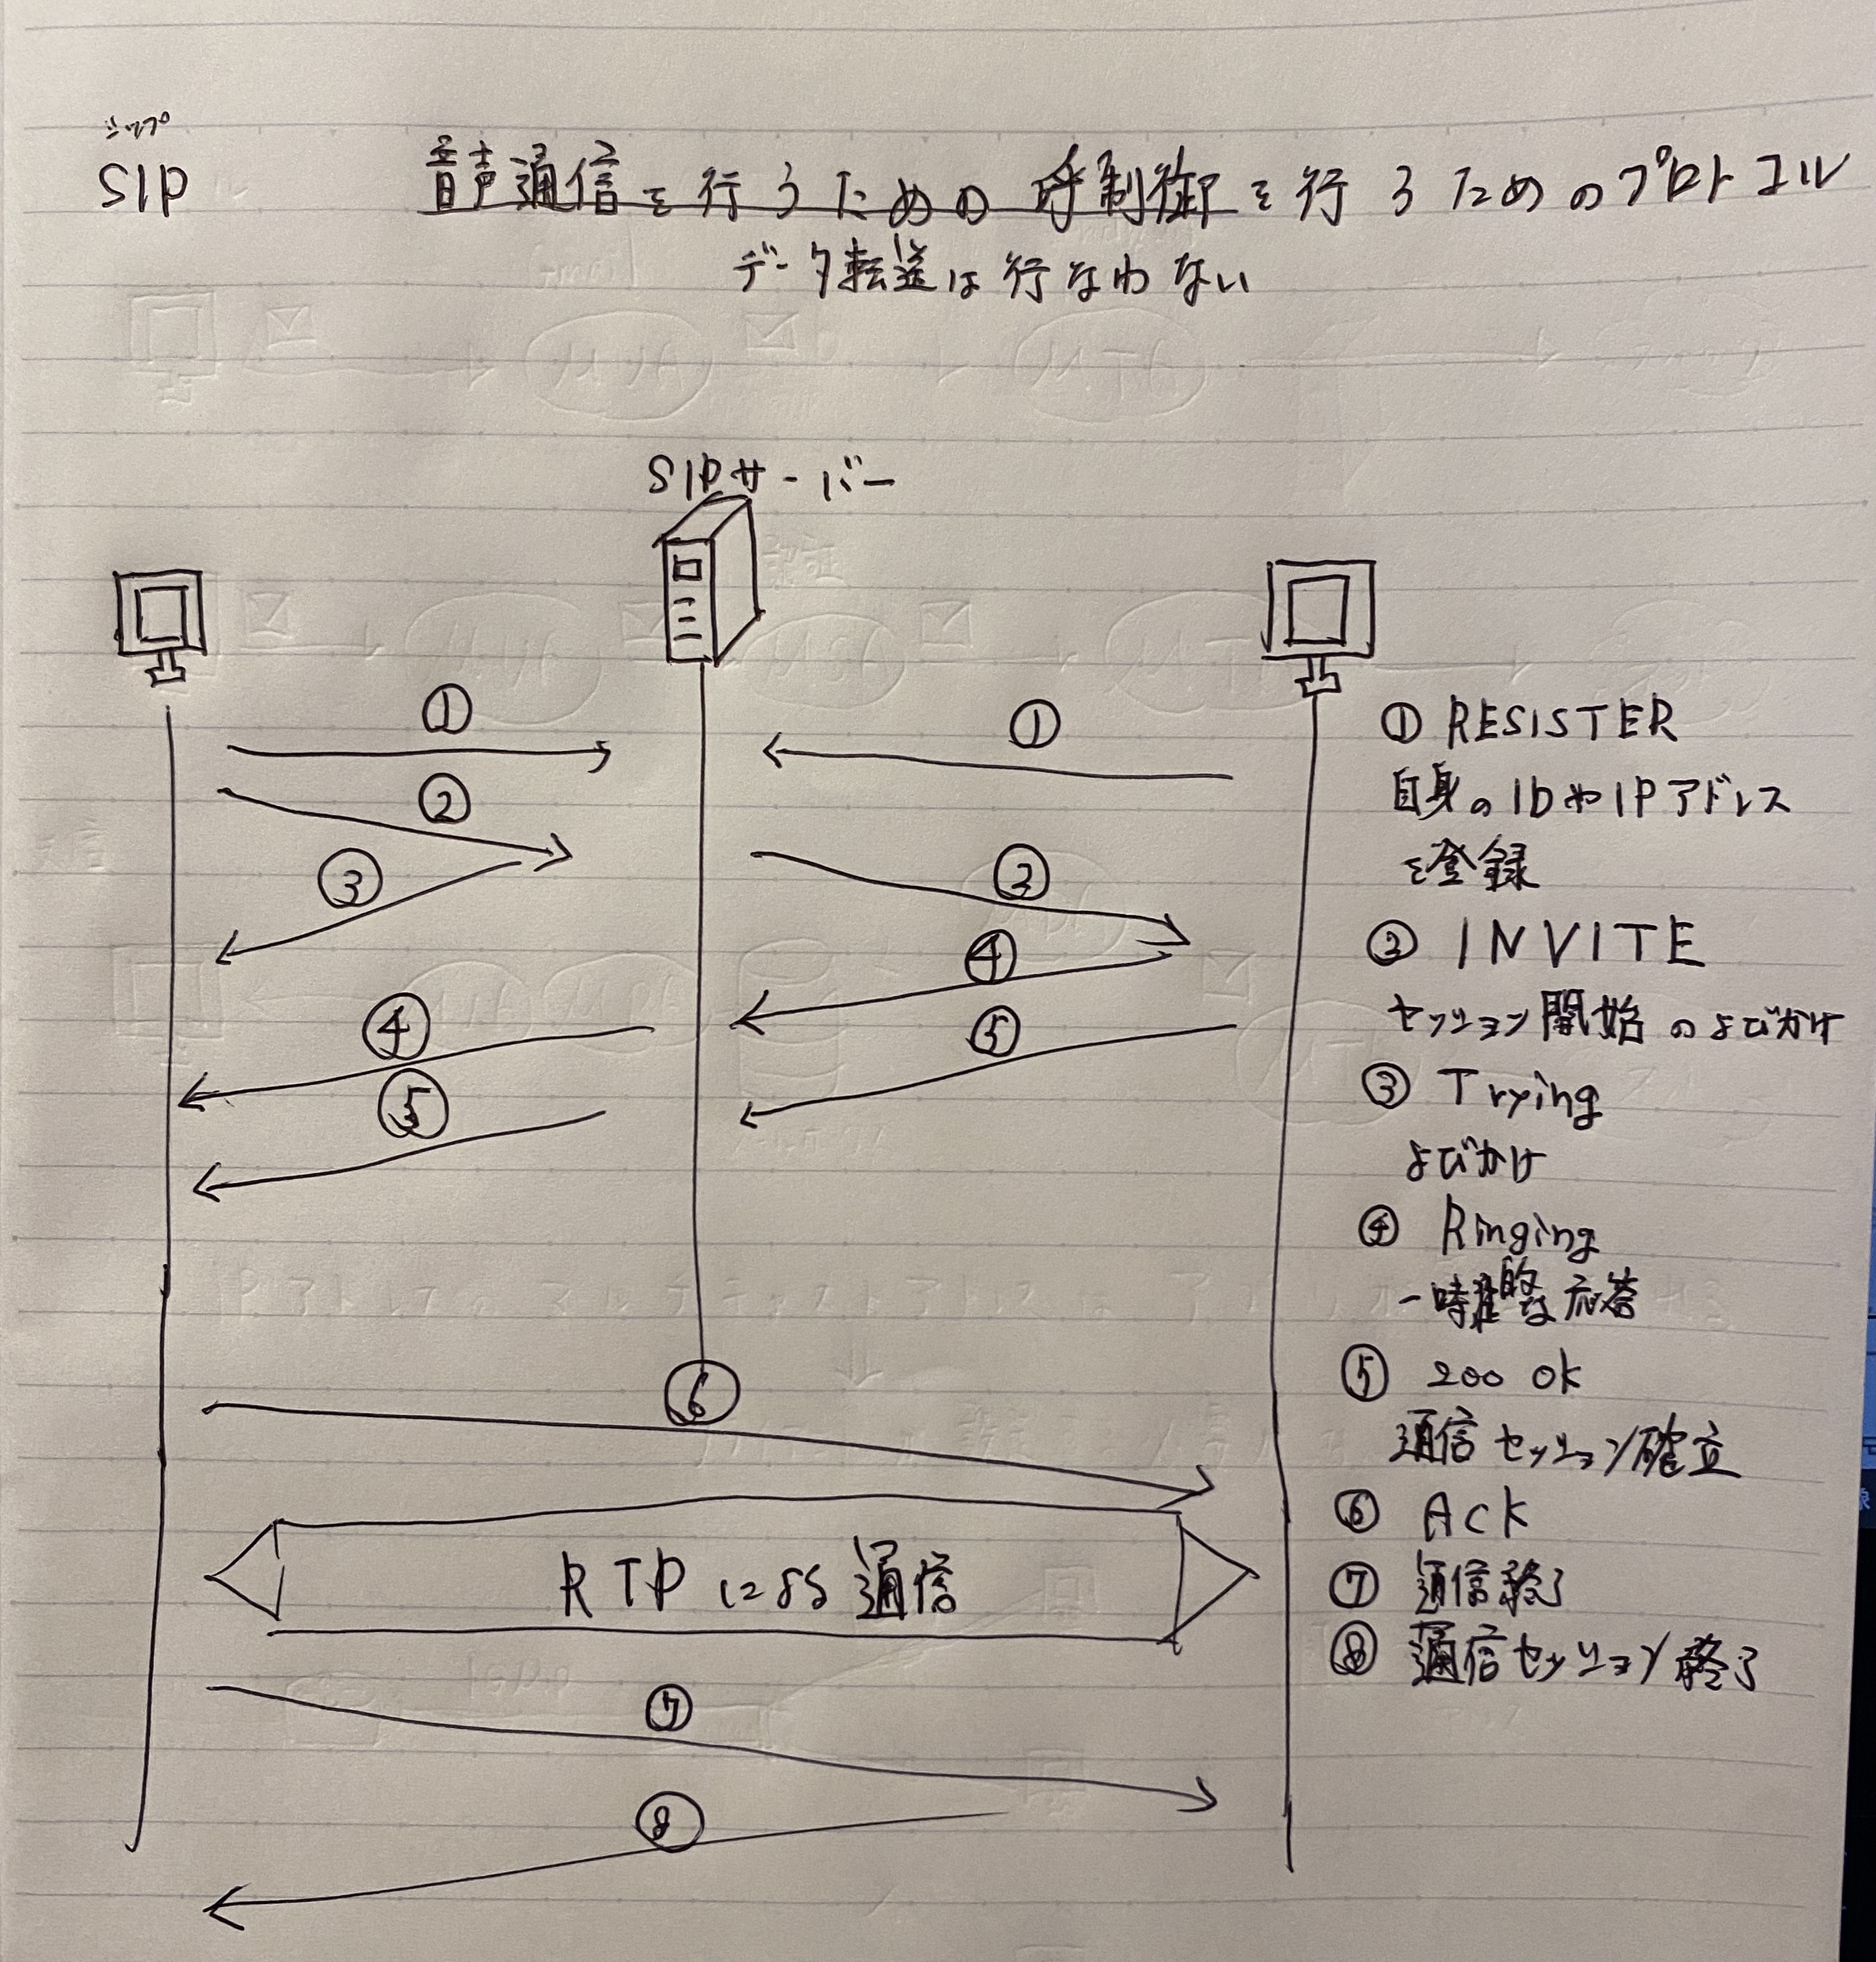 シップ
SIP 音声通信を行うための呼制御を行うためのプロトコル
データ転送は行なわない
SIPサーバー
① ①
②
③ ②
④
④ ⑤
⑤
⑥
RTPによる通信
⑦
⑧
① RESISTER
自身のIDやIPアドレス
を登録
② INVITE
セッション開始のよびかけ
③ Trying
よびかけ
④ Ringing
一時的な応答
⑤ 200 OK
通信セッション確立
⑥ ACK
⑦ 通信終了
⑧ 通信セッション終了